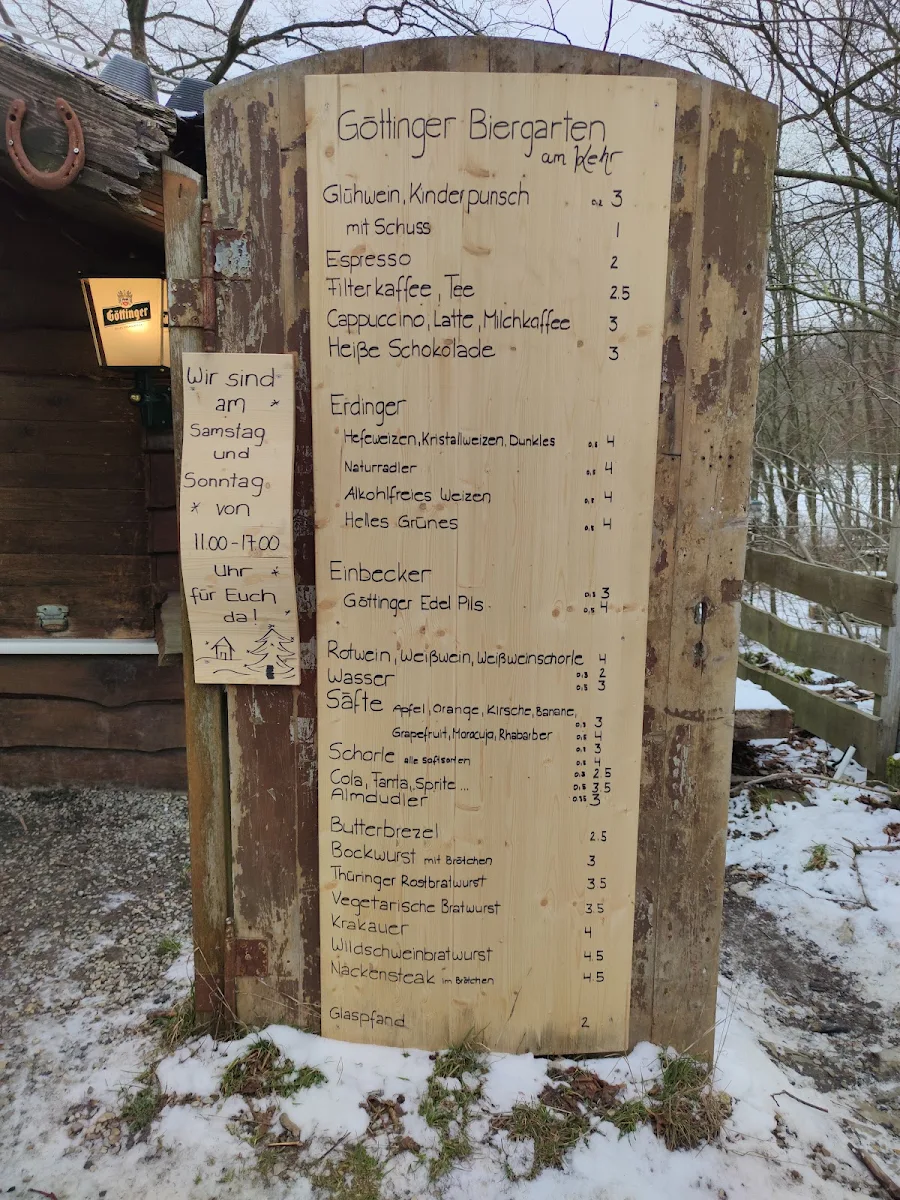 Göttinger Biergarten
am Kehr
Glühwein, Kinderpunsch 0,2 3
mit Schuss 1
Espresso 2
Filterkaffee, Tee 2.5
Cappuccino, Latte, Milchkaffee 3
Heiße Schokolade 3
Erdinger
Hefeweizen, Kristallweizen, Dunkles 0,5 4
Naturradler 0,5 4
Alkohlfreies Weizen 0,5 4
Helles Grünes 0,5 4
Einbecker
0,3 3
Göttinger Edel Pils 0,5 4
Rotwein, Weißwein, Weißweinschorle 4
Wasser 0,3 2
0,5 3
Säfte Apfel, Orange, Kirsche, Banane,
0,3 3
Grapefruit, Maracuja, Rhabarber 0,5 4
0,3 3
Schorle alle Saftsorten 0,5 4
Cola, Fanta, Sprite ... 0,3 2.5
0,5 3.5
Almdudler 0,35 3
Butterbrezel 2.5
Bockwurst mit Brötchen 3
Thüringer Rostbratwurst 3.5
Vegetarische Bratwurst 3.5
Krakauer 4
Wildschweinbratwurst 4.5
Nackensteak im Brötchen 4.5
Glaspfand 2
Göttinger
Wir sind
am
Samstag
und
Sonntag
von
11.00-17.00
Uhr
für Euch
da!